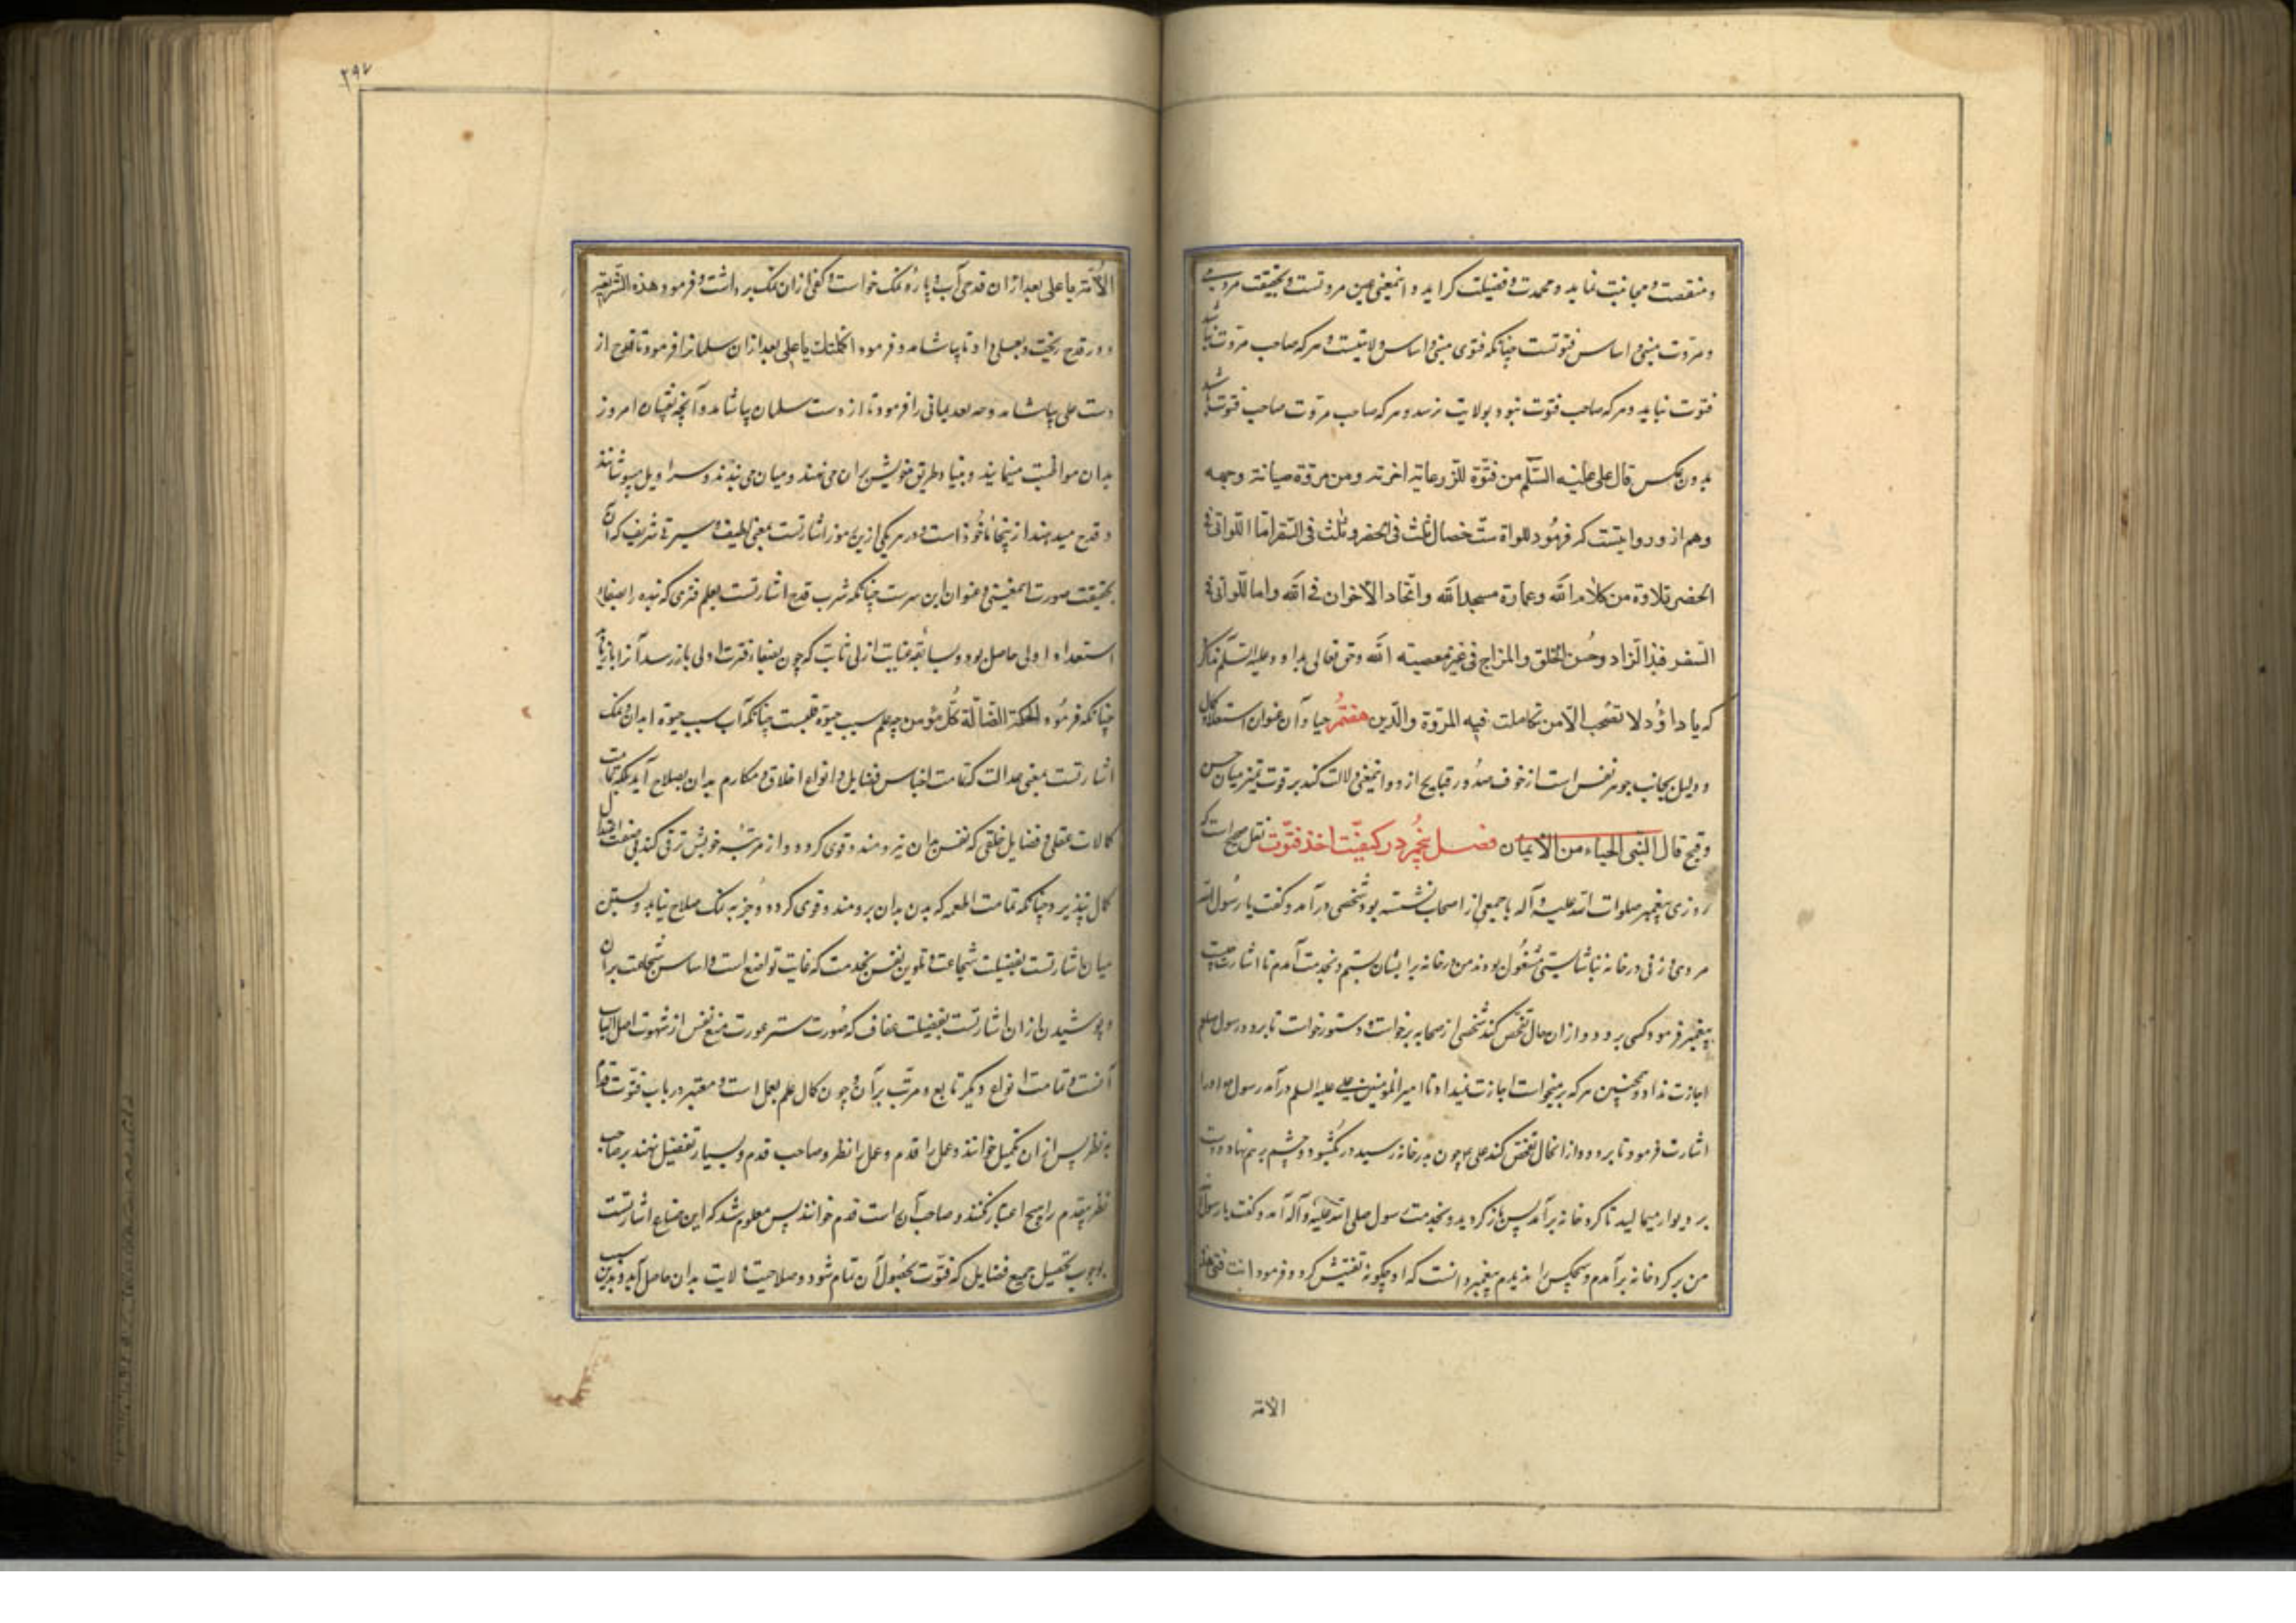 و منقصت و مجانبت نماید و محمدت و فضیلت گراید و اینمعنی عین مروتست و بحقیقت مروت
و مروت مبنی و اساس فتوتست چنانکه فتوی مبنی و اساس ولایتست و هر که صاحب مروت نباشد
فتوت نیابد و هر که صاحب فتوت نبود بولایت نرسد و هر که صاحب مروت صاحب فتوت باشد
بدون عکس قال علی علیه السّلم من فتوّة للزرعایة اخرته ومن مروّة صیانة وجهه
وهم ازو روایتست که فرمود للمرواة ستّ خصال ثلث فی الحضر و ثلث فی السّفر امّا اللواتی فی
الحضر تلاوة من کلام الله وعمارة مسجد الله واتّخاد الأخوان فی الله واما اللّواتی فی
السّفر فبذالزاد وحُسن الخلق والمزاج فی غیر معصیته الله وحق تعالی بداود علیه السّلم
که یا داؤد لا تصحب الّا من تکاملت فیه المروّة والدّین هفتم حیا و آن عنوان استعداد کمال
و دلیل بجانب جوهر نفس است از خوف صدور قبایح ازو و اینمعنی دلالت کند بر قوت تمیز میان حسن
وقبح قال النّبی الحیاء من الأیمان فصل پنجم در کیفیّت اخذ فتوّت نقل صحیح است که
روزی پیغمبر صلوات الله علیه و آله با جمعی از اصحاب نشسته بود شخصی درآمد و گفت یا رسول الله
مردی و زنی در خانه بناشایستی مشغول بودند من در خانه برایشان بستم و بخدمت آمدم تا اشارت چیست
پیغمبر فرمود کسی برود و از آن حال تفحّص کند شخصی از صحابه برخواست و دستور خواست تا برود رسول صلعم
اجازت نداد و همچنین هر که برمیخواست اجازت نمیداد تا امیرالمؤمنین علی علیه السلم درآمد رسول او را
اشارت فرمود تا برود و از آنحال تفحّص کند علی چون بدر خانه رسید در بگشود و چشم برهم نهاد و دست
بر دیوار میمالید تا گرد خانه برآمد پس بازگردید و بخدمت رسول صلی الله علیه و آله آمد و گفت یا رسول الله
من بر گرد خانه برآمدم و هیچکس را ندیدم پیغمبر دانست که او چگونه تفتیش کرد و فرمود انت فتی هذه
الامة
۲۹۷
الأمّة یا علی بعد از آن قدحی آب و پاره نمک خواست و کفی از آن نمک برداشت و فرمود هذه الشّریعة
و در قدح ریخت و بعلی داد تا بیاشامد و فرمود اکملتک یا علی بعد از آن سلمانرا فرمود تا قدح از
دست علی بیاشامد و حذیفه یمانی را فرمود تا از دست سلمان بیاشامد و آنچه فتیان امروز
بدان مواظبت مینمایند و بنیاد طریق خویش بر آن می نهند و میان می بندند و سراویل میپوشانند
و قدح میدهند از پنجا ماخوذ است و در هر یکی ازین رموز اشارتست بمعنی لطیف و سیرتی شریف که آن
بحقیقت صورت اینمعنی و عنوان این سرست چنانکه شرب قدح اشارتست بعلم فتری که بنده را بصفاء
استعداد اولی حاصل بود و سابقه عنایت ازلی ثابت که چون بصفاء فترت اولی بازرسد آنرا بازیابد
چنانکه فرموده الحکمة الضّالّة کلّ مؤمن چه علم سبب حیوة قلبست چنانکه آب سبب حیوة ابدان و نمک
اشارتست بمعنی عدالت که تمامت اجناس فضایل و انواع اخلاق و مکارم بدان بصلاح آید بلکه تمامت
کمالات عقلی و فضایل خلقی که نفس بدان نیرومند و قوی گردد و از مرتبهٔ خویش ترقی کند بی صفت اعتدال
کمال نپذیرد چنانکه تمامت اطعمه که بدن بدان برومند و قوی گردد و جز به نمک صلاح نیابد و بستن
میان اشارتست بفضیلت شجاعت و تلوین نفس بخدمت که غایت تواضع است و اساس شجاعت بر آن
و پوشیدن ازار اشارتست بفضیلت عفاف که صورت ستر عورت منع نفس از شهوت اصل الباب
آنست و تمامت انواع دیگر تابع و مرتّب بر آن و چون کمال علم بعمل است و معتبر در باب فتوّت قدم
نه نظر پس از آن تکمیل خوانند و عمل را قدم و عمل را نظر و صاحب قدم و بسیار تفضیل نهند بر صاحب
نظر بی قدم را هیچ اعتبار نکنند و صاحب آن است قدم خوانند پس معلوم شد که این اوضاع اشارتست
بوجوب تحصیل جمیع فضایل که فتوّت بحصول آن تمام شود و صلاحیت ولایت بدان حاصل آید و بدین سبب